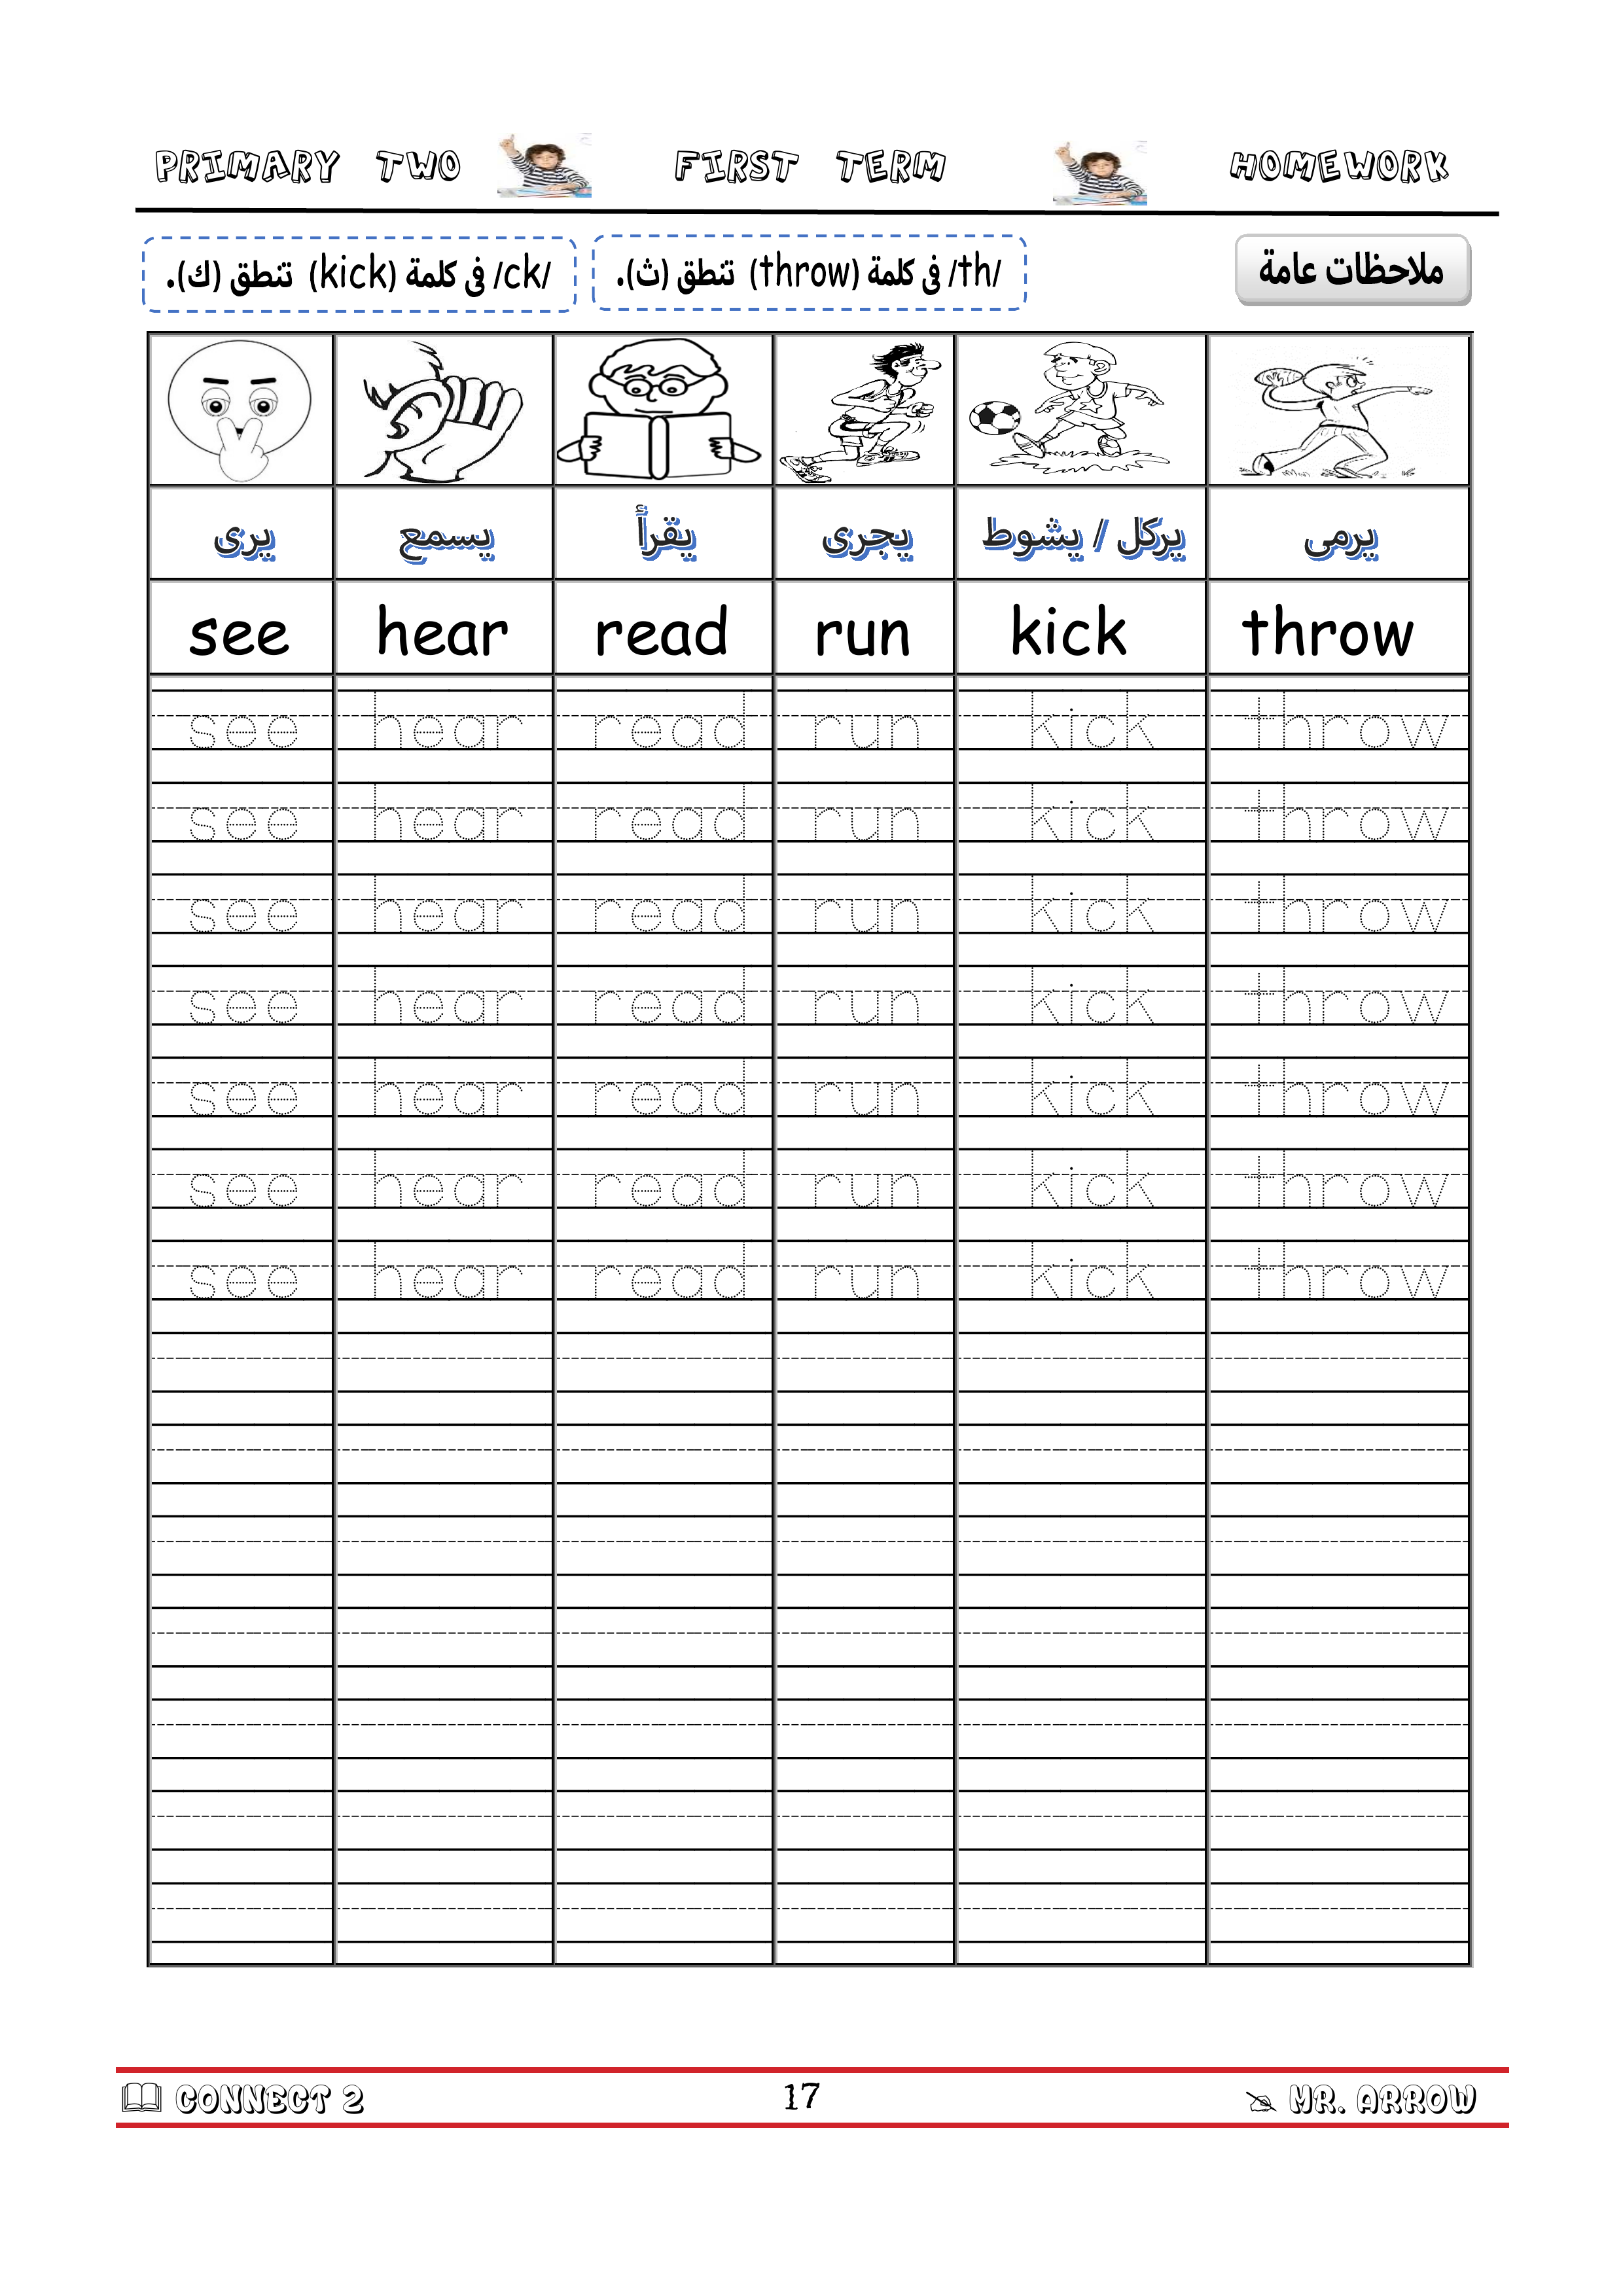 PRIMARY TWO FIRST TERM HOMEWORK
ملاحظات عامة
/th/ فى كلمة (throw) تنطق (ث).
/ck/ فى كلمة (kick) تنطق (ك).
يرى يسمع يقرأ يجرى يركل / يشوط يرمى
see hear read run kick throw
see hear read run kick throw
see hear read run kick throw
see hear read run kick throw
see hear read run kick throw
see hear read run kick throw
see hear read run kick throw
see hear read run kick throw
CONNECT 2 17 MR. ARROW